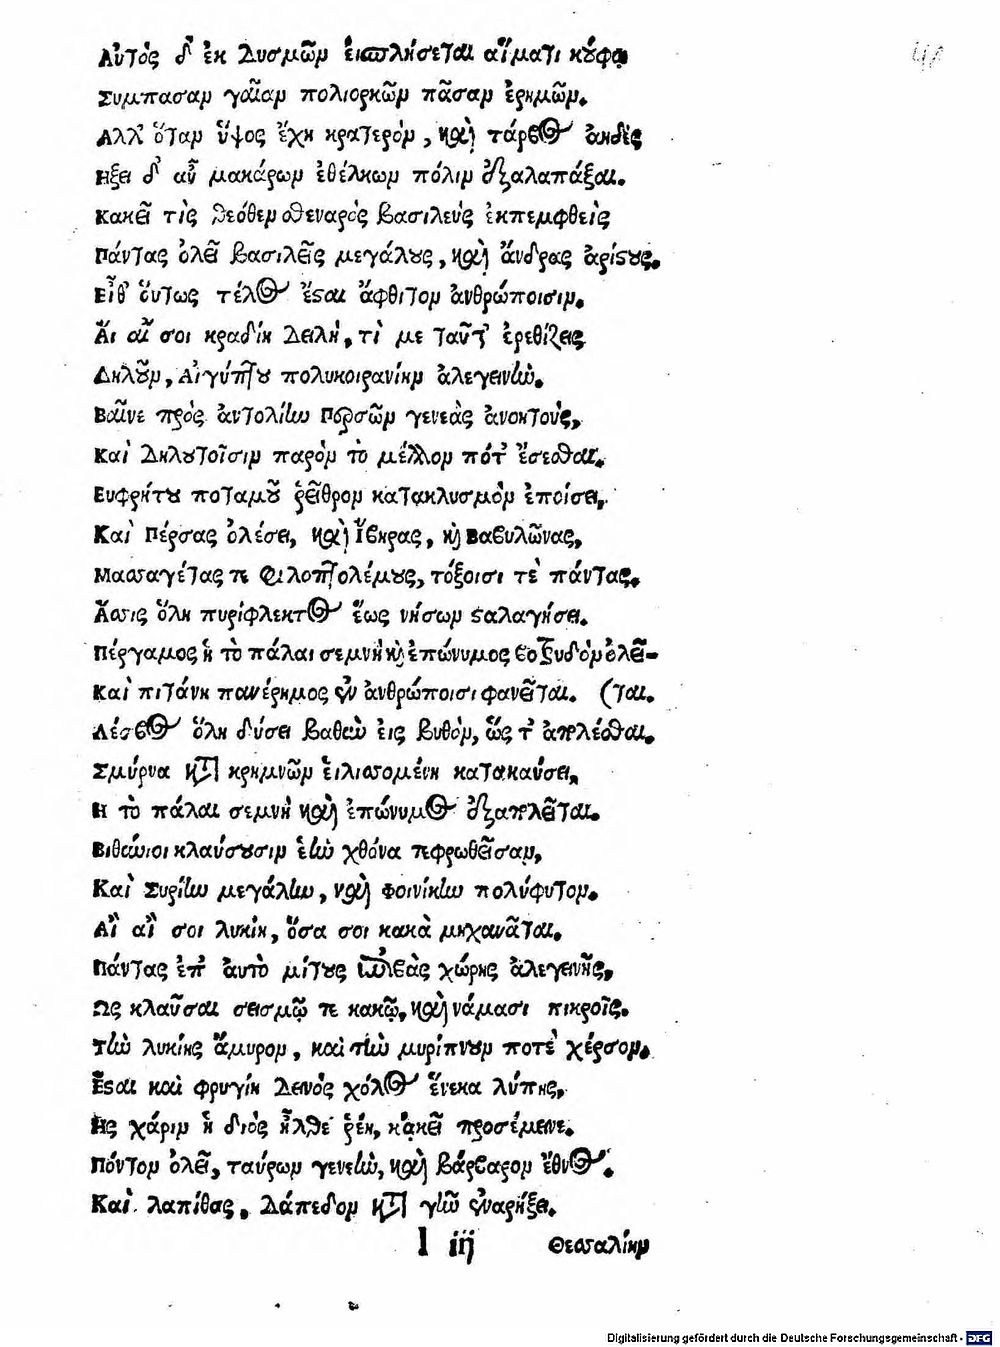 Αὐτὸς δ' ἐκ δυσμῶν εἰσπλήσεται αἵματι κούφῳ
Συμπασαν γαῖαν πολιορκῶν πᾶσαν ἐρημῶν.
Αλλ' ὅταν ὕψος ἔχῃ κρατερὸν, καὶ τάρβος ἀηδὲς
ηξει δ' αὖ μακάρων ἐθέλκων πόλιν ἐξαλαπάξαι.
Κακεῖ τὶς θεόθεν σθεναρὸς βασιλεὺς ἐκπεμφθεὶς
Πάντας ὀλεῖ βασιλεῖς μεγάλους, καὶ ἄνδρας ἀρίστους.
Εἶθ' οὕτως τέλος ἔσται ἄφθιτον ἀνθρώποισιν.
Ἄι αἴ σοι κραδίη δειλὴ, τὶ με ταῦτ' ἐρεθίζεις
Δηλοῦν, Αἰγύπτου πολυκοιρανίην ἀλεγεινὴν.
Βαῖνε πρὸς ἀντολίην Περσῶν γενεὰς ἀνοητοὺς,
Καὶ δηλουτοῖσιν παρὸν τὸ μέλλον πότ' ἔσεσθαι.
Ευφρήτου ποταμοῦ ῥεῖθρον κατακλυσμὸν ἐποίσει,
Καὶ Πέρσας ὀλέσει, καὶ Ἴβηρας, καὶ Βαβυλῶνας,
Μασσαγέτας τε φιλοπτολέμους, τόξοισι τὲ πάντας.
Ἄσσις ὅλη πυρίφλεκτος ἕως νήσων σταλαγήσει.
Πέργαμος ἡ τὸ πάλαι σεμνὴ καὶ ἐπώνυμος ἐοξυδὸν ὀλεῖ-
Καὶ πιτάνη πανέρημος ἐν ἀνθρώποισι φανεῖται. (ται.
Λέσβος ὅλη δύσει βαθὺν εἰς βυθὸν, ὥς τ' ἀπλέσθαι.
Σμύρνα κατὰ κρημνῶν εἱλισσομένη κατακαύσει,
Η τὸ πάλαι σεμνὴ καὶ ἐπώνυμος ἐξαπλεῖται.
Βιθύνιοι κλαύσουσιν ἑὴν χθόνα πεφρωθεῖσαν,
Καὶ Συρίην μεγάλην, καὶ Φοινίκην πολύφυτον.
Αἲ αἲ σοι λυκίη, ὅσα σοι κακὰ μηχανᾶται.
Πάντας ἐπ' αυτὸ μίτους χώρης ἀλεγεινῆς,
Ως κλαῦσαι σεισμῷ τε κακῷ, καὶ νάμασι πικροῖς.
Τὴν λυκίης ἄμυρον, καὶ τὴν μυρίπνουν ποτὲ χέρσον.
Εσται καὶ φρυγίη δεινὸς χόλος ἕνεκα λύπης,
Ης χάριν ἡ διὸς ἦλθε ῥέη, κἀκεῖ προσέμεινε.
Πόντον ὀλεῖ, ταύρων γενεὴν, καὶ βάρβαρον ἔθνος.
Καὶ λαπίθας, δάπεδον κατὰ γῆν ἐναρήξει.
l iij Θεσσαλίην
Digitalisierung gefördert durch die Deutsche Forschungsgemeinschaft - DFG